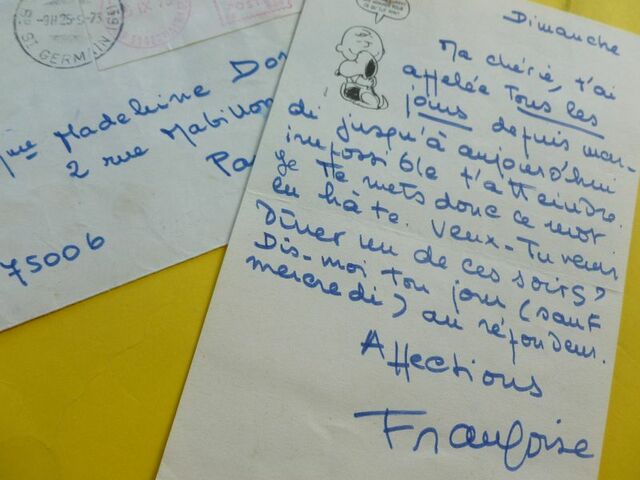 -9H25-9-73
ST GERMAIN
Mme Madeleine
2 rue Mabillon
75006
Dimanche
Ma chérie, t'ai
appelée tous les
jours depuis mar-
di jusqu'à aujourd'hui
impossible t'atteindre.
Je te mets donc ce mot
en hâte. Veux-tu venir
Dîner un de ces soirs?
Dis-moi ton jour (sauf
mercredi) au répondeur.
Affections
Françoise